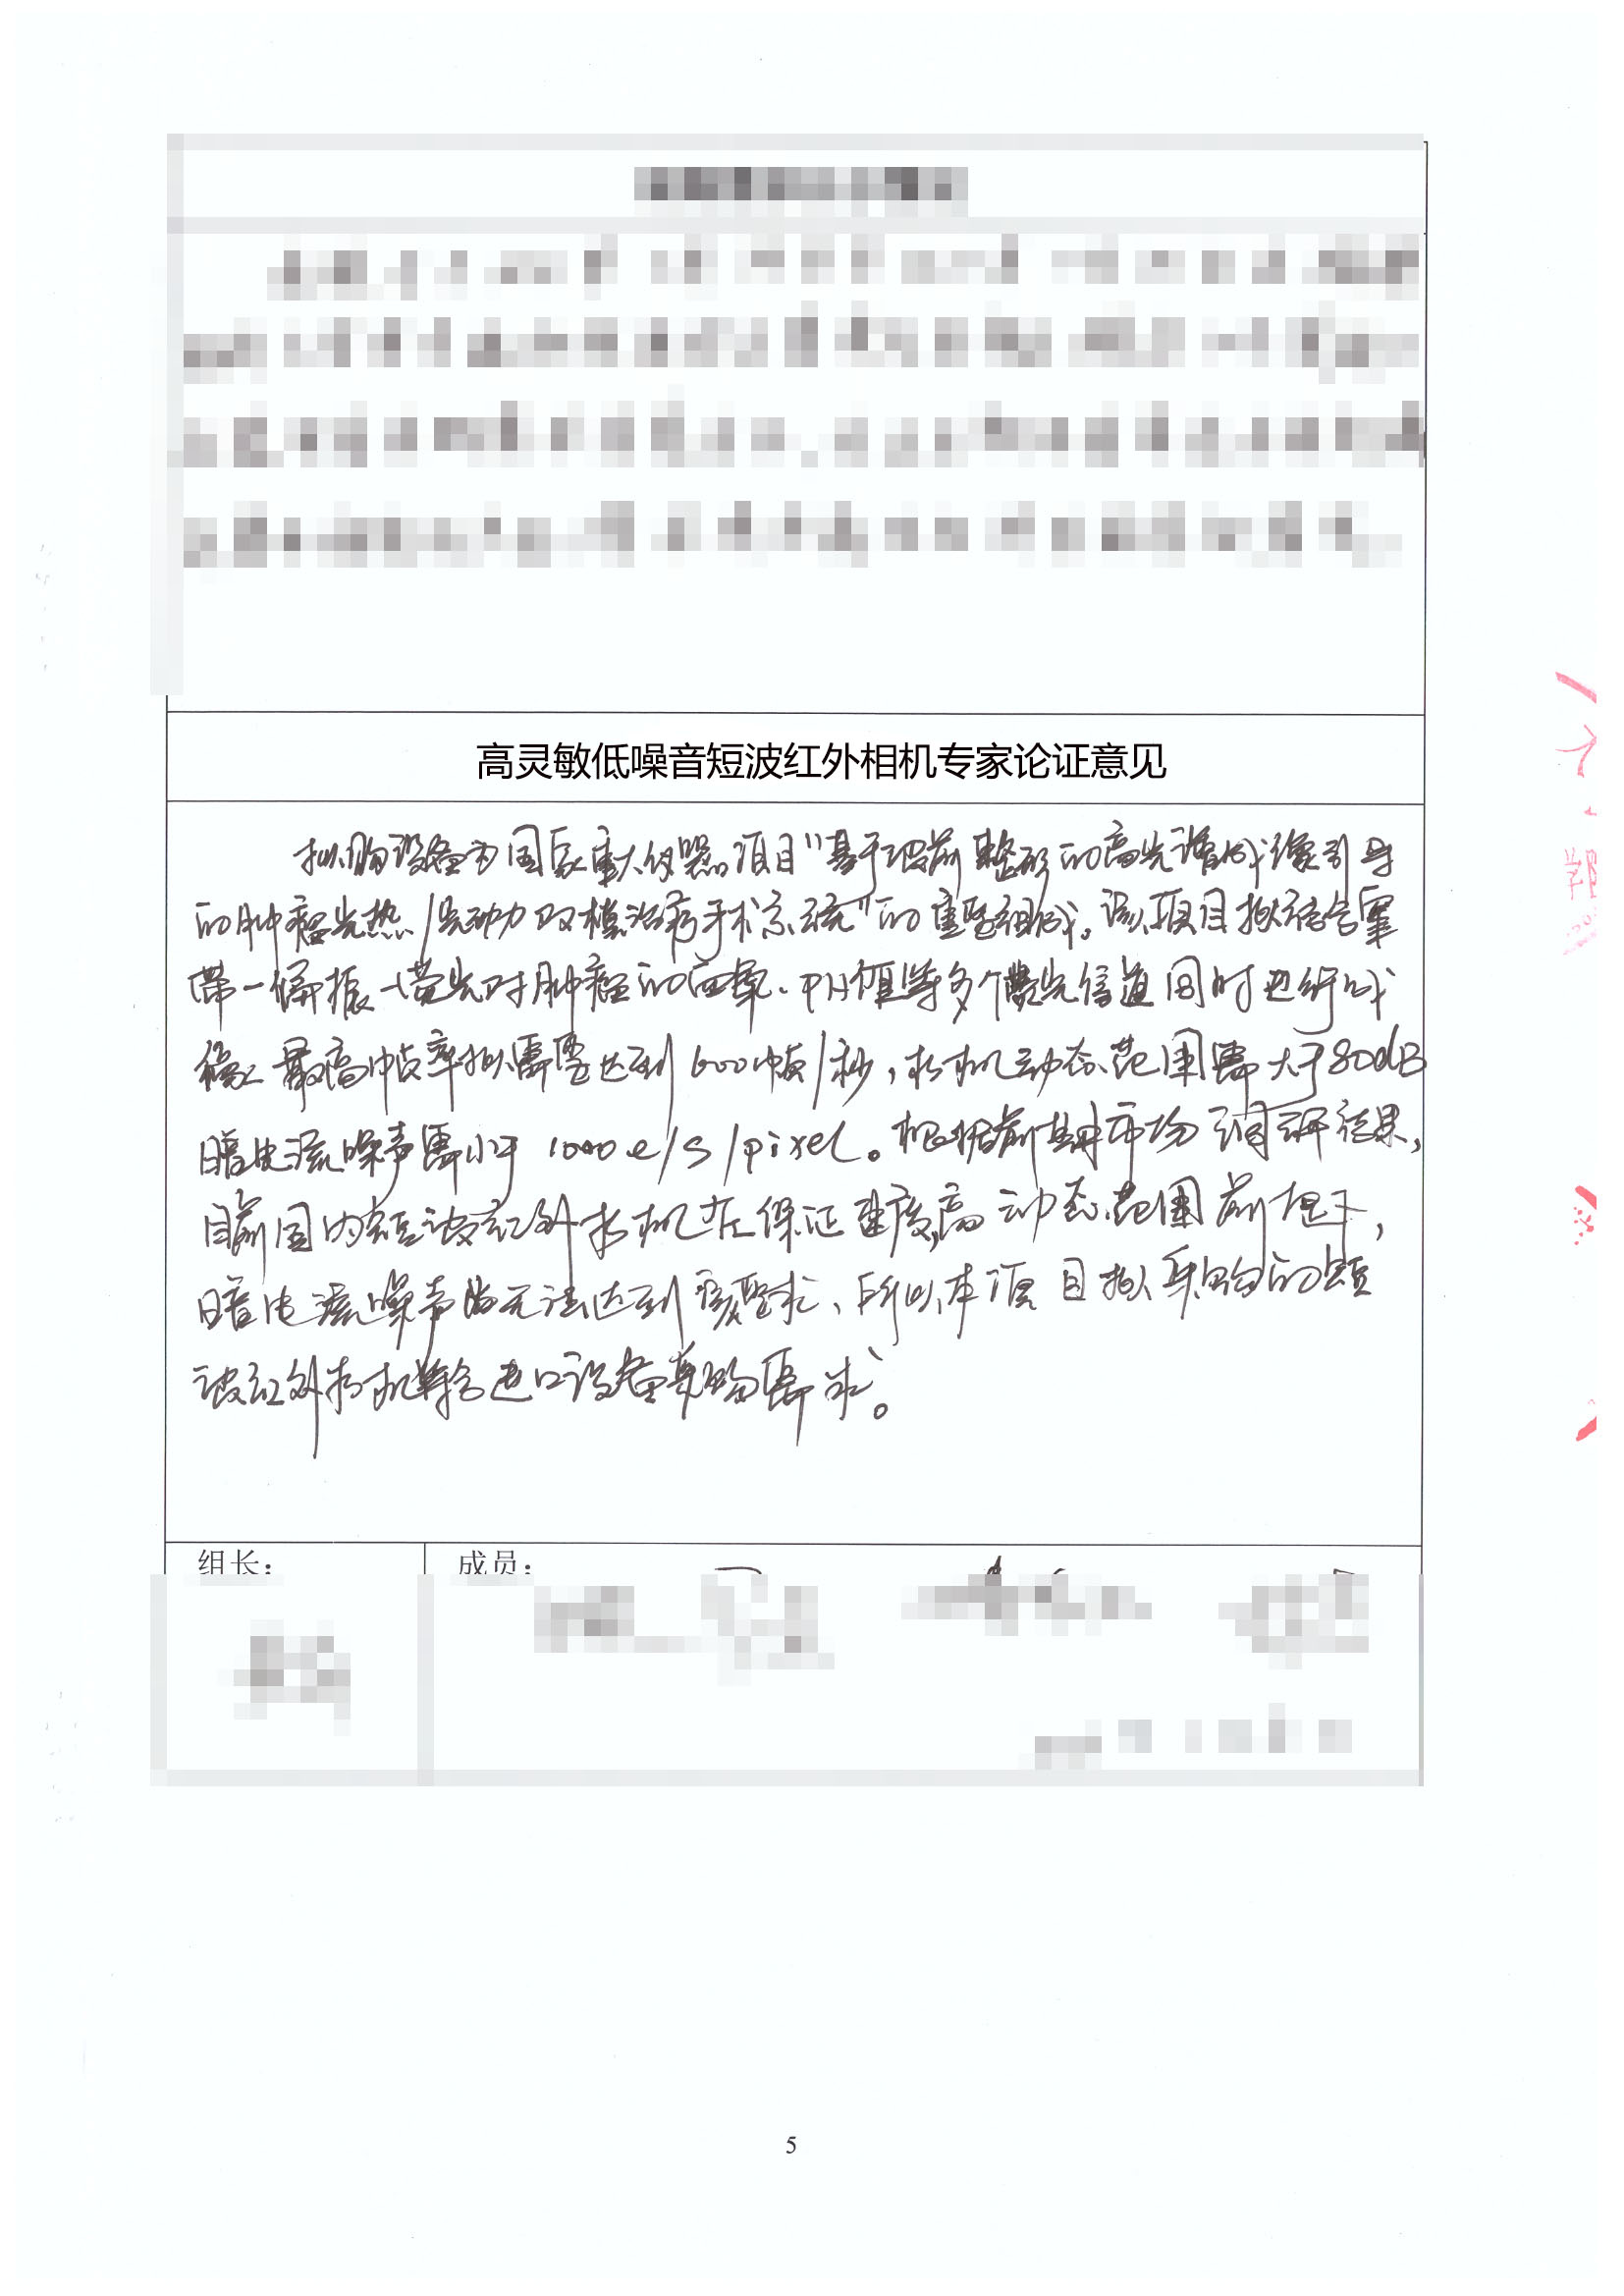 高灵敏低噪音短波红外相机专家论证意见
拟购设备为国家重大仪器项目"基于波前整形的高光谱成像引导
的肿瘤光热/光动力双模治疗手术系统"的重要组成。该项目拟结合宽
带一偏振一荧光对肿瘤的血氧、PH值等多个荧光信道同时进行成
像，最高帧率拟需要达到600帧/秒，相机动态范围需大于80dB
暗电流噪声需小于1000e/s/pixel。根据前期市场调研结果，
目前国内短波红外相机在保证速度,高动态范围前提下，
暗电流噪声尚无法达到该要求、所以本项目拟采购的短
波红外相机符合进口设备采购需求。
组长：
成员：
5